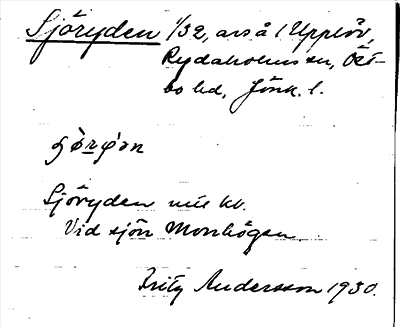 Sjöryden 1/32, avs å 1 Upplöv,
Rydaholms sn, Öst-
bo hd, Jönk. l.
Sjöryden mil kv.
Vid sjön Monhögen.
Fritz Andersson 1930.